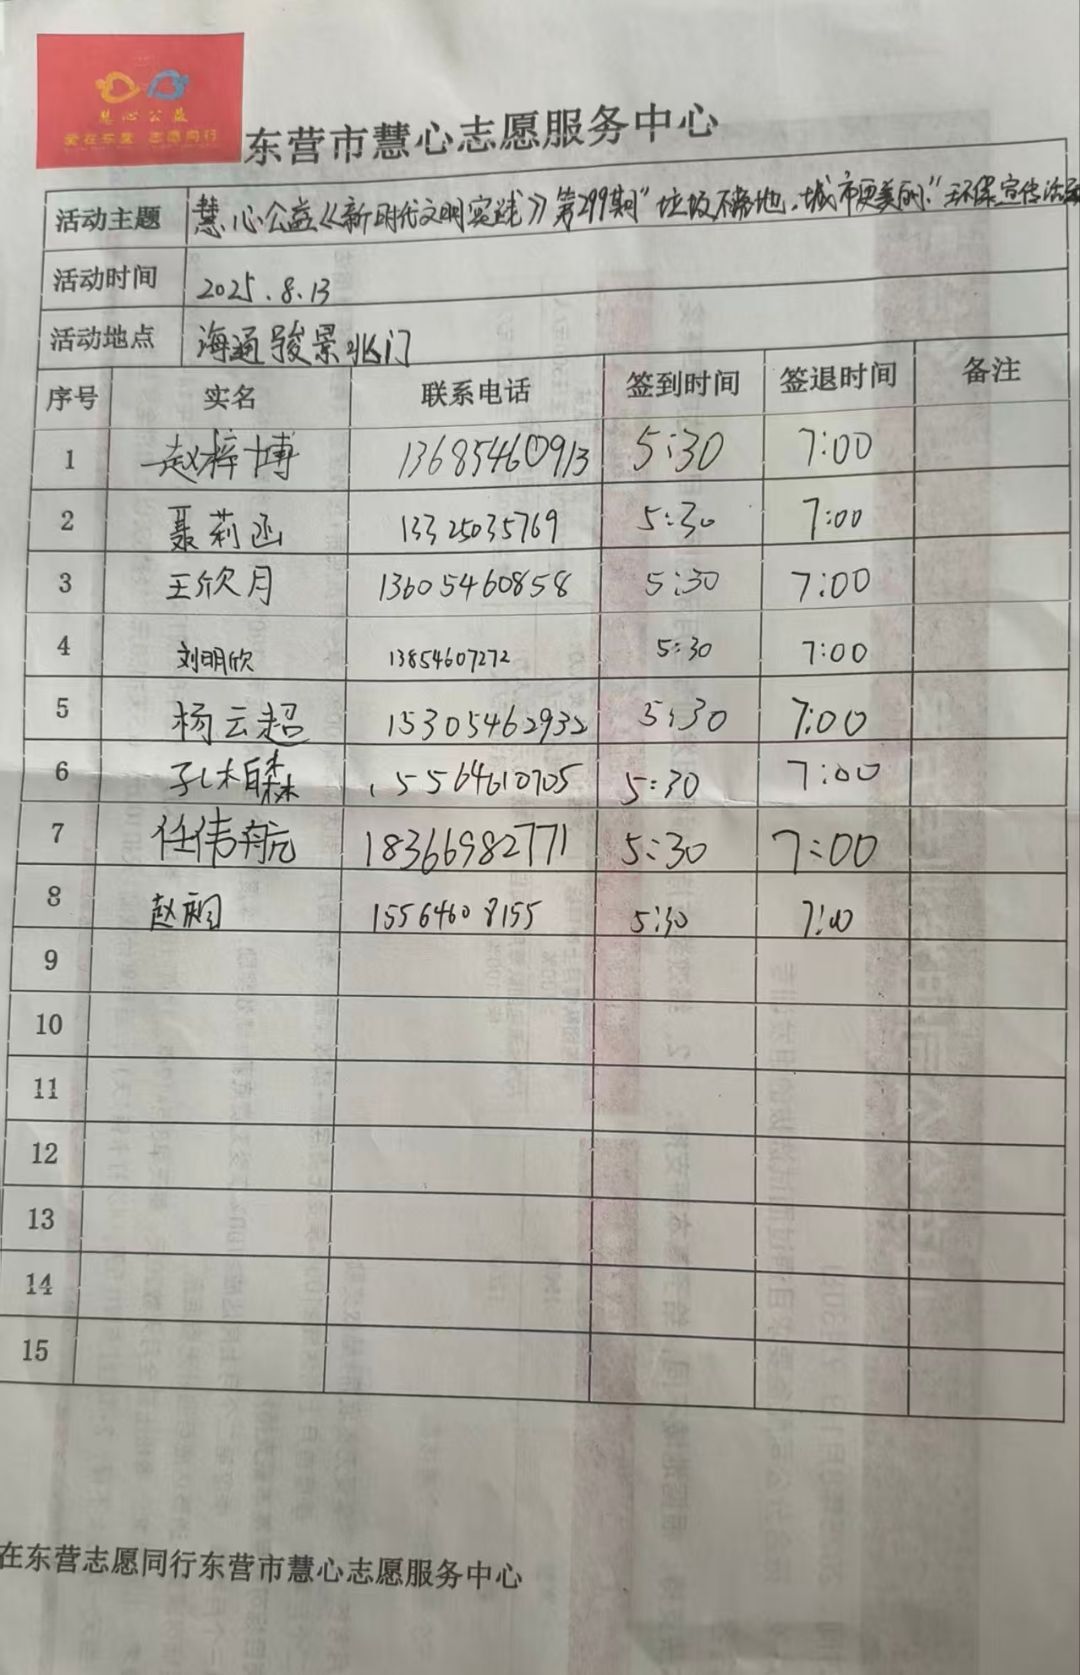 慧心公益
爱在东营 志愿同行
东营市慧心志愿服务中心
活动主题 慧心公益《新时代文明实践》第299期"垃圾不落地,城市更美丽"环保宣传活动
活动时间 2025.8.13
活动地点 海通骏景北门
序号 实名 联系电话 签到时间 签退时间 备注
1 赵梓博 13685460913 5:30 7:00
2 聂莉函 13325035769 5:30 7:00
3 王欣月 13605460858 5:30 7:00
4 刘明欣 13854607272 5:30 7:00
5 杨云超 15305462932 5:30 7:00
6 孔柏森 15564610705 5:30 7:00
7 任伟航 18366982771 5:30 7:00
8 赵 15564608155 5:30 7:00
9
10
11
12
13
14
15
在东营志愿同行东营市慧心志愿服务中心